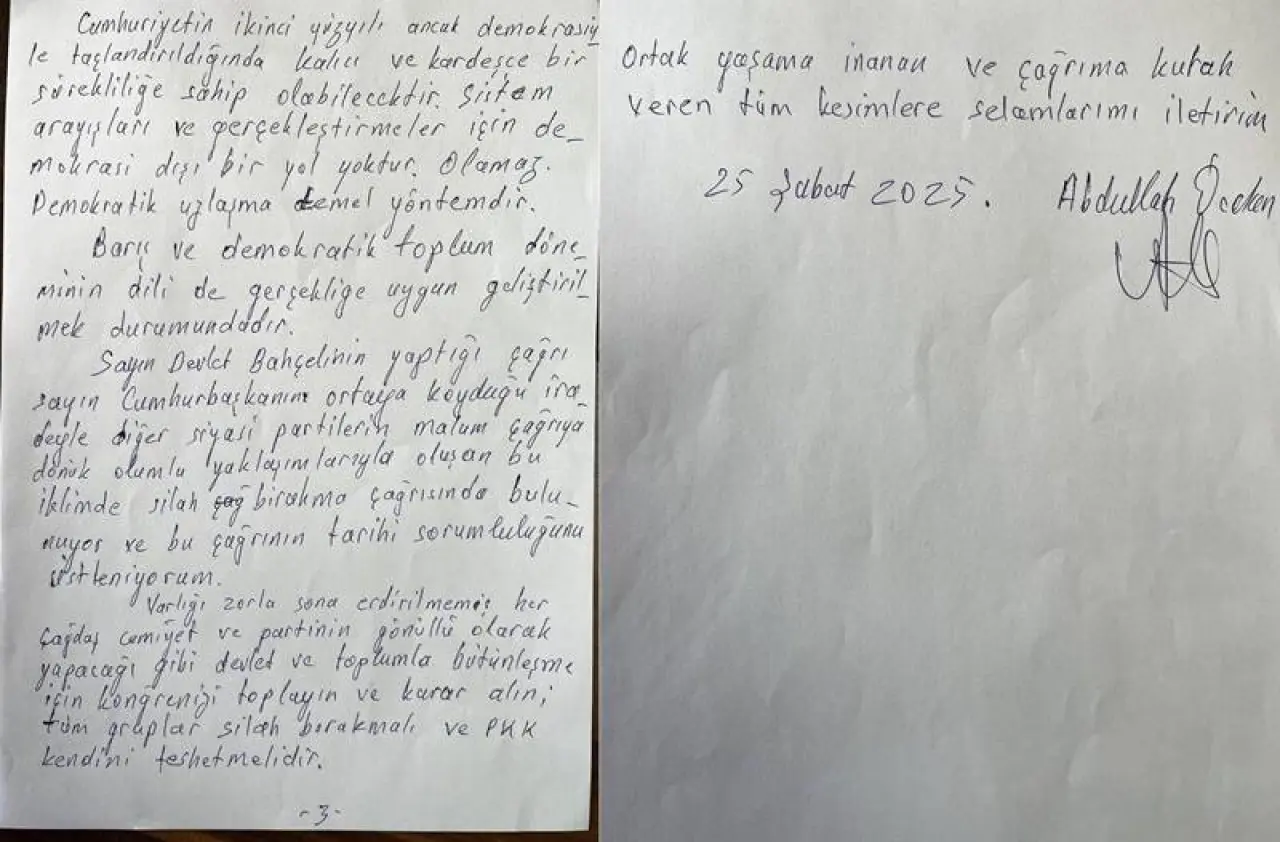 Cumhuriyetin ikinci yüzyılı ancak demokrasiy
le taçlandırıldığında kalıcı ve kardeşçe bir
sürekliliğe sahip olabilecektir. Sistem
arayışları ve gerçekleştirmeler için de-
mokrasi dışı bir yol yoktur. Olamaz.
Demokratik uzlaşma temel yöntemdir.
Barış ve demokratik toplum döne-
minin dili de gerçekliğe uygun geliştiril-
mek durumundadır.
Sayın Devlet Bahçelinin yaptığı çağrı
sayın Cumhurbaşkanını ortaya koyduğu ira-
deyle diğer siyasi partilerin malum çağrıya
dönük olumlu yaklaşımlarıyla oluşan bu
iklimde silah çağ bırakma çağrısında bulu-
nuyor ve bu çağrının tarihi sorumluluğunu
üstleniyorum.
Varlığı zorla sona erdirilmemiş her
çağdaş cemiyet ve partinin gönüllü olarak
yapacağı gibi devlet ve toplumla bütünleşme
için kongrenizi toplayın ve karar alın;
tüm gruplar silah bırakmalı ve PKK
kendini feshetmelidir.
-3-
Ortak yaşama inanan ve çağrıma kulak
veren tüm kesimlere selamlarımı iletirim
25 Şubat 2025. Abdullah Öcalan